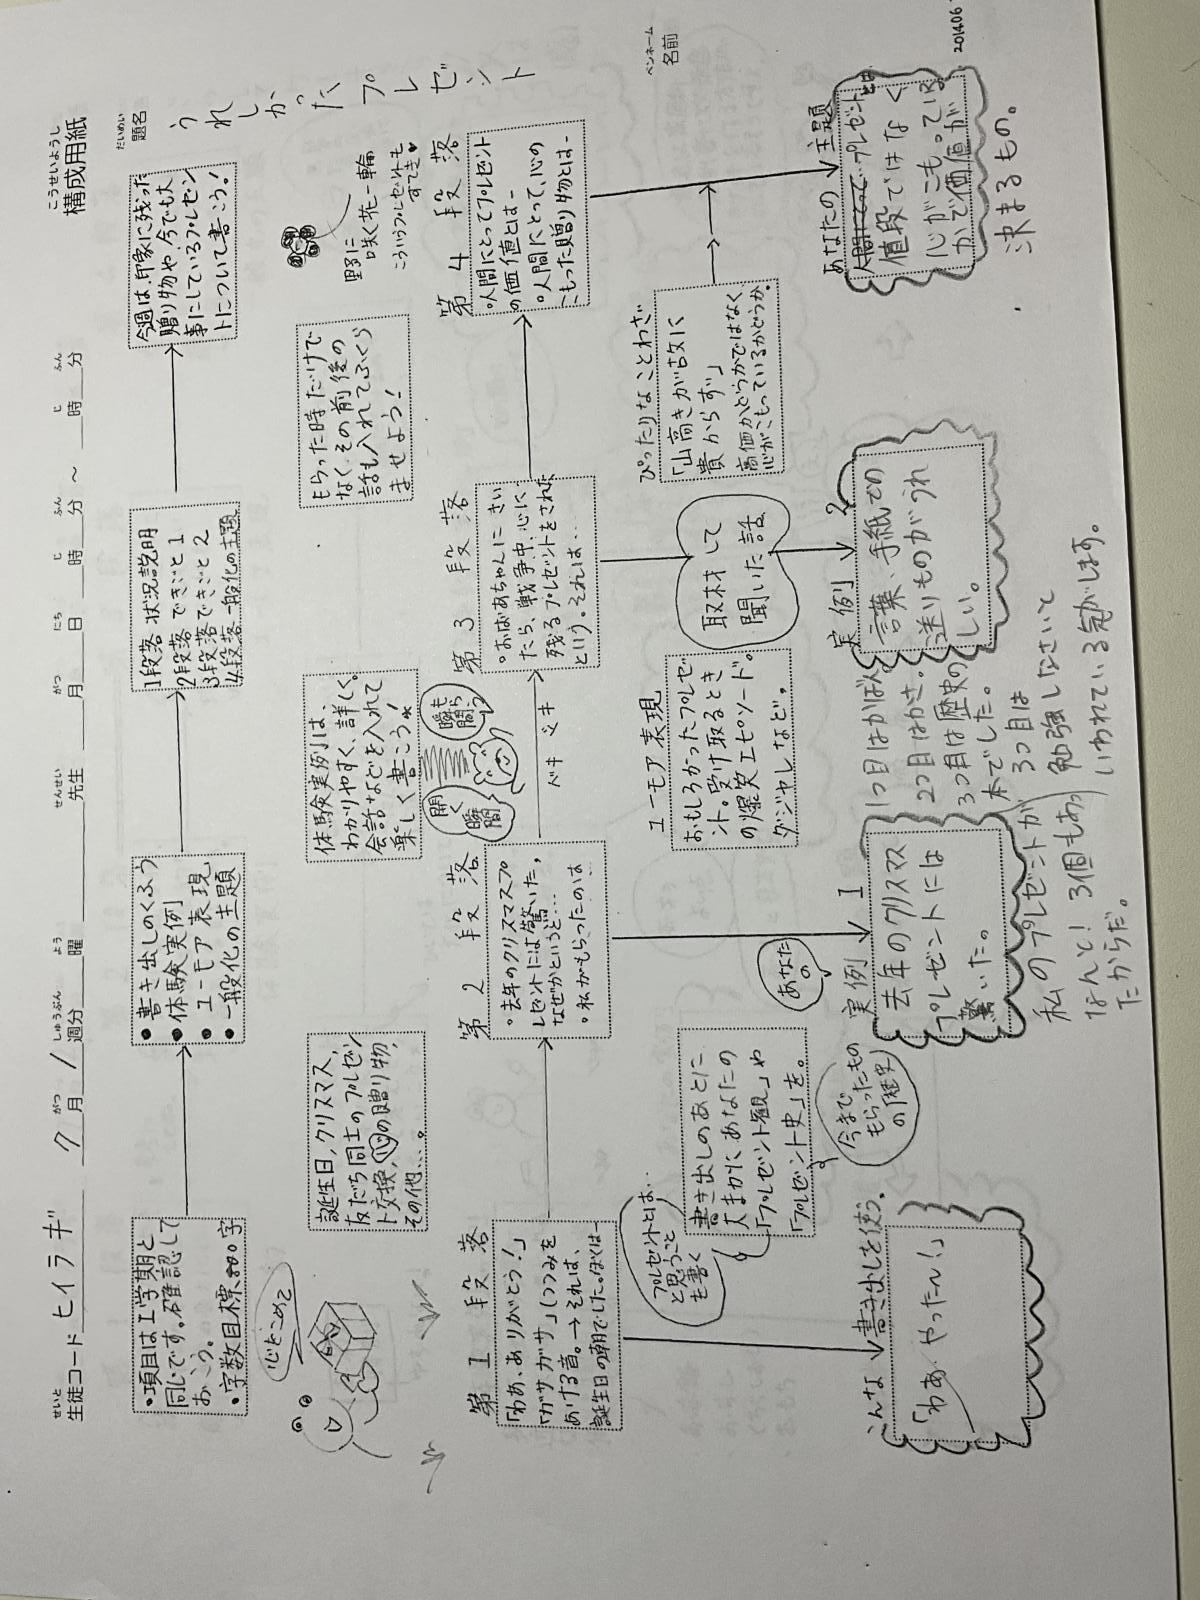 構成用紙
こうせいようし
生徒コード ヒイラギ 7月/週分 曜 先生 月 日 時 分 ～ 時 分
せいと がつ しゅうぶん よう せんせい がつ にち じ ふん じ ふん
題名
だいめい
うれしかったプレゼント
ペンネーム
名前
・項目は1学期と
同じです。確認して
おこう。
・字数目標800字
・書き出しのくふう
・体験実例
・ユーモア表現
・一般化の主題
1段落 状況説明
2段落 できごと1
3段落 できごと2
4段落 一般化の主題
今週は、印象に残った
贈り物や、今でも大
事にしているプレゼン
トについて書こう！
心をこめて
誕生日、クリスマス、
友だち同士のプレゼン
ト交換、心の贈り物、
その他…。
体験実例は、
わかりやすく、詳しく。
会話などを入れて
楽しく書こう！
開く瞬間
もらう瞬間
ドキドキ
もらった時だけで
なく、その前後の
話も入れてふくら
ませよう！
野に
咲く花一輪
こういうプレゼントも
すてき♥
第1段落
「わあ、ありがとう！」
「ガサガサ」(つつみを
あける音。→それは、
誕生日の朝でした。ぼくは-
第2段落
・去年のクリスマスプ
レゼントには驚いた。
なぜかというと…
・私がもらったのは
第3段落
・おばあちゃんにきい
たら、戦争中、心に
残るプレゼントをされた
という。それは…
第4段落
・人間にとってプレゼント
の価値とは-
・人間にとって、心の
こもった贈り物とは-
プレゼントとは…
と思うこと
も書く
書き出しのあとに
大まかにあなたの
「プレゼント観」や
「プレゼント史」を。
今まで
もらったもの
の歴史
あなたの
ユーモア表現
おもしろかったプレゼ
ント。受け取るとき
の爆笑エピソード。
ダジャレなど。
取材して
聞いた話
ぴったりなことわざ
「山高きが故に
貴からず」
高価かどうかではなく
心がこもっているかどうか。
こんな書き出しを使う。
「わあ やったー！」
実例1
去年のクリスマス
プレゼントには
驚いた。
私のプレゼントが
なんと！3個もあっ
たからだ。
1つ目はかばん
2つ目はかさ。
3つ目は歴史の
本でした。
3つ目は
勉強しなさいと
いわれている気がします。
実例2
言葉、手紙での
送りものがうれ
しい。
あなたの主題
人間にとってプレゼントとは
値段ではなく
心がこもっている
かで価値が
決まるもの。
201406